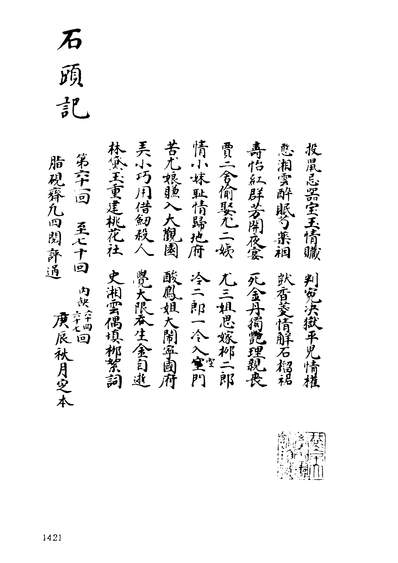 石頭記
投鼠忌器宝玉情贓 判冤决獄平児情權
憨湘雲醉眠芍薬裀 獃香菱情解石榴裙
壽怡紅群芳開夜宴 死金丹獨艷理親喪
賈二舍偷娶尤二姨 尤三姐思嫁柳二郎
情小妹耻情歸地府 冷二郎一冷入空門
苦尤娘賺入大觀園 酸鳳姐大鬧寧國府
弄小巧用借劒殺人 覺大限吞生金自逝
林黛玉重建桃花社 史湘雲偶填柳絮詞
第六十一回 至七十回 内缺六十四 六十七回
脂硯齋凡四閱評過 庚辰秋月定本
1421